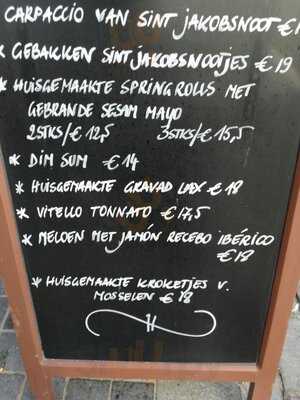 CARPACCIO VAN SINT JAKOBSNOOT €
* GEBAKKEN SINT JAKOBSNOOTJES €19
* HUISGEMAAKTE SPRINGROLLS MET
GEBRANDE SESAM MAYO
2STKS/€12,5 3STKS/€15,5
* DIM SUM €14
* HUISGEMAAKTE GRAVAD LAX €18
* VITELLO TONNATO €17,5
* MELOEN MET JAMÓN RECEBO IBÉRICO
€18
* HUISGEMAAKTE KROKETJES V.
MOSSELEN €18
H